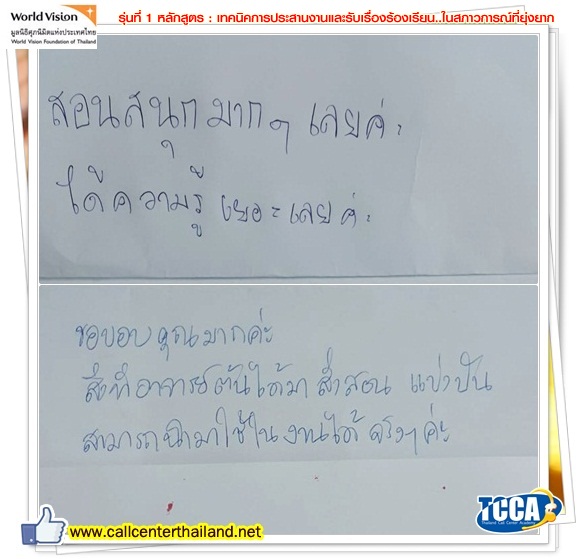 World Vision
มูลนิธิศุภนิมิตแห่งประเทศไทย
World Vision Foundation of Thailand
รุ่นที่ 1 หลักสูตร : เทคนิคการประสานงานและรับเรื่องร้องเรียน..ในสภาวการณ์ที่ยุ่งยาก
สอนสนุกมากๆ เลยค่ะ
ได้ความรู้ เยอะเลยค่ะ
ขอบอบคุณมากค่ะ
สิ่งที่อาจารย์ต้นได้มา สั่งสอน แบ่งปัน
สามารถนำมาใช้ในงานได้ จริงๆค่ะ
www.callcenterthailand.net
TCCA
Thailand Call Center Academy